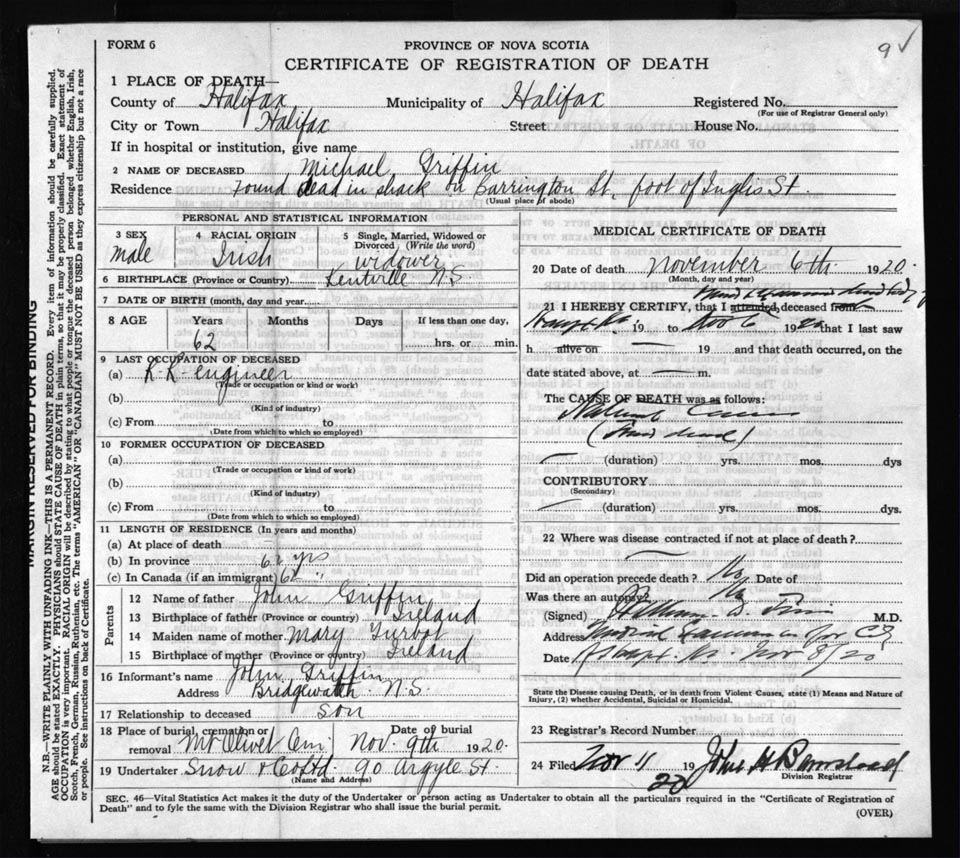 9 ✓
FORM 6
PROVINCE OF NOVA SCOTIA
CERTIFICATE OF REGISTRATION OF DEATH
1 PLACE OF DEATH—
County of Halifax Municipality of Halifax Registered No.
(For use of Registrar General only)
City or Town Halifax Street House No.
If in hospital or institution, give name
2 NAME OF DECEASED Michael Griffin
Residence Found dead in shack on Barrington St, foot of Inglis St.
(Usual place of abode)
PERSONAL AND STATISTICAL INFORMATION
3 SEX 4 RACIAL ORIGIN 5 Single, Married, Widowed or
Divorced (Write the word)
male Irish widower
6 BIRTHPLACE (Province or Country) Kentville N.S.
7 DATE OF BIRTH (month, day and year)
8 AGE Years Months Days If less than one day,
62 hrs. or min.
9 LAST OCCUPATION OF DECEASED
(a) R-R- engineer
(Trade or occupation or kind or work)
(b)
(Kind of industry)
(c) From to
(Date from which to which so employed)
10 FORMER OCCUPATION OF DECEASED
(a)
(Trade or occupation or kind of work)
(b)
(Kind of industry)
(c) From to
(Date from which to which so employed)
11 LENGTH OF RESIDENCE (In years and months)
(a) At place of death
(b) In province 62 yrs
(c) In Canada (if an immigrant) 62 "
Parents
12 Name of father John Griffin
13 Birthplace of father (Province or country) Ireland
14 Maiden name of mother Mary Turbot
15 Birthplace of mother (Province or country) Ireland
16 Informant's name John Griffin
Address Bridgewater N.S.
17 Relationship to deceased son
18 Place of burial, cremation or removal Mt Olivet Cem Date of burial Nov. 9th 1920.
19 Undertaker Snow & Co Ltd. 90 Argyle St.
(Name and Address)
MEDICAL CERTIFICATE OF DEATH
20 Date of death November 6th 1920.
(Month, day and year)
21 I HEREBY CERTIFY, that I attended, deceased from
19 to Nov 6 1920 that I last saw
h alive on 19 and that death occurred, on the
date stated above, at m.
The CAUSE OF DEATH was as follows:
Natural Causes
(Found dead)
(duration) yrs. mos. dys
CONTRIBUTORY
(Secondary)
(duration) yrs. mos. dys.
22 Where was disease contracted if not at place of death?
Did an operation precede death? No Date of
Was there an autopsy? No
(Signed) M.D.
Address Medical Examiner for
Date Nov 8/20
State the Disease causing Death, or in death from Violent Causes, state (1) Means and Nature of
Injury, (2) whether Accidental, Suicidal or Homicidal.
23 Registrar's Record Number
24 Filed Nov 11 1920 John H Barnstead
Division Registrar
SEC. 46—Vital Statistics Act makes it the duty of the Undertaker or person acting as Undertaker to obtain all the particulars required in the "Certificate of Registration of
Death" and to fyle the same with the Division Registrar who shall issue the burial permit.
(OVER)
MARGIN RESERVED FOR BINDING
N.B.—WRITE PLAINLY WITH UNFADING INK—THIS IS A PERMANENT RECORD. Every item of information should be carefully supplied.
AGE should be stated EXACTLY. PHYSICIANS should STATE CAUSE OF DEATH in plain terms, so that it may be properly classified. Exact statement of
OCCUPATION is very important. RACIAL ORIGIN will be described by stating to what people or tongue the deceased person belonged, whether English, Irish,
Scotch, French, German, Russian, Ruthenian, etc. The terms "AMERICAN" OR "CANADIAN" MUST NOT BE USED as they express citizenship but not a race
or people. See instructions on back of Certificate.